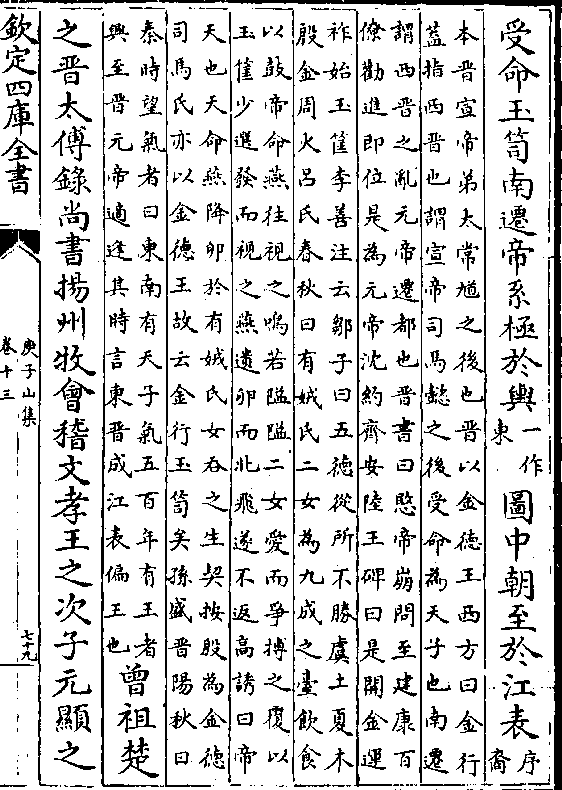 受命玉笥南遷帝系極於輿一作東圖中朝至於江表序裔
本晉宣帝弟太常馗之後也晉以金德王西方曰金行
蓋指西晉也謂宣帝司馬懿之後受命為天子也南遷
謂西晉之亂元帝遷都也晉書曰愍帝崩問至建康百
僚勸進即位是為元帝沈約齊安陸王碑曰是開金運
祚始玉筐李善注云鄒子曰五德從所不勝虞土夏木
殷金周火吕氏春秋曰有娀氏二女為九成之臺飲食
以鼓帝命燕往視之鳴若隘隘二女愛而爭搏之覆以
玉筐少選發而視之燕遺卵而北飛遂不返高誘曰帝
天也天命燕降卵於有娀氏女吞之生契按殷為金德
司馬氏亦以金德王故云金行玉笥矣孫盛晉陽秋曰
秦時望氣者曰東南有天子氣五百年有王者
興至晉元帝適逢其時言東晉成江表偏王也曾祖楚
之晉太傅錄尚書揚州牧會稽文孝王之次子元顯之
欽定四庫全書
庾子山集
卷十三
七十九